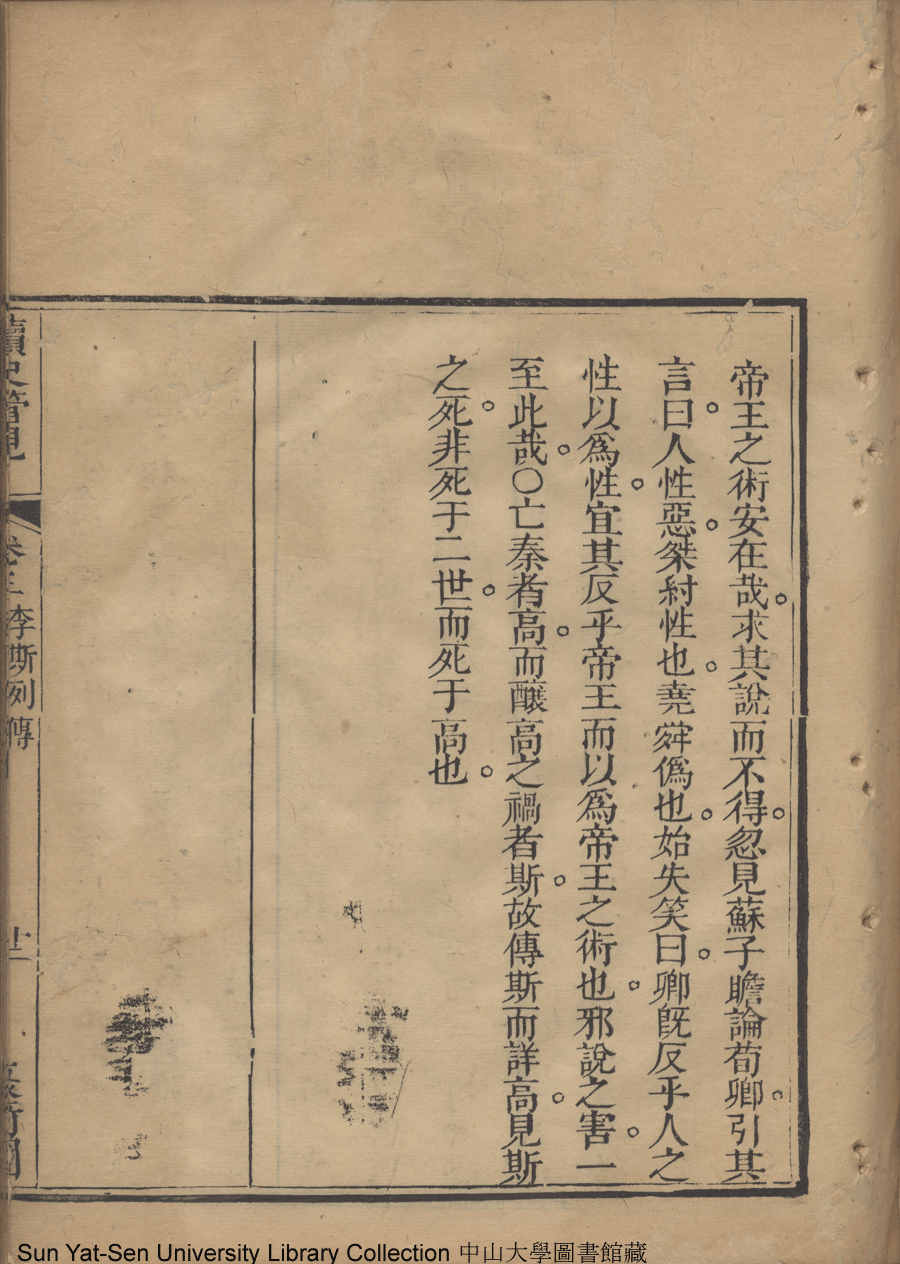 帝王之術安在哉。求其說而不得。忽見蘇子瞻論荀卿。引其
言曰。人性惡。桀紂性也。堯舜僞也。始失笑曰。卿旣反乎人之
性以爲性。宜其反乎帝王而以爲帝王之術也。邪說之害。一
至此哉。○亡秦者高。而釀高之禍者斯。故傳斯而詳高。見斯
之死。非死于二世。而死于高也。
讀史管見
卷三 李斯列傳
廿一
Sun Yat-Sen University Library Collection 中山大學圖書館藏